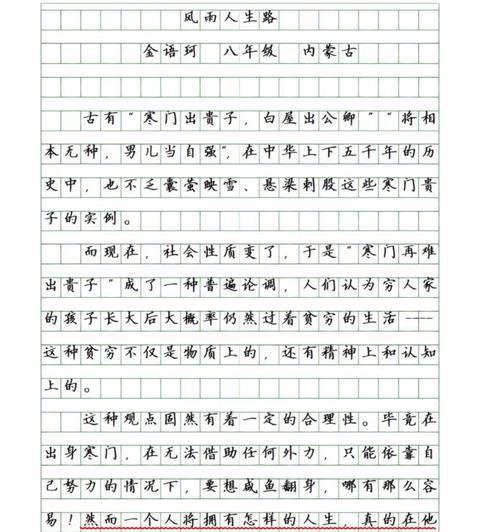 风雨人生路
金语珂 八年级 内蒙古
古有“寒门出贵子，白屋出公卿”“将相
本无种，男儿当自强”，在中华上下五千年的历
史中，也不乏囊萤映雪、悬梁刺股这些寒门贵
子的实例。
而现在，社会性质变了，于是“寒门再难
出贵子”成了一种普遍论调，人们认为穷人家
的孩子长大后大概率仍然过着贫穷的生活----
这种贫穷不仅是物质上的，还有精神上和认知
上的。
这种观点固然有着一定的合理性。毕竟在
出身寒门，在无法借助任何外力，只能依靠自
己努力的情况下，要想咸鱼翻身，哪有那么容
易！然而一个人将拥有怎样的人生 真的在他